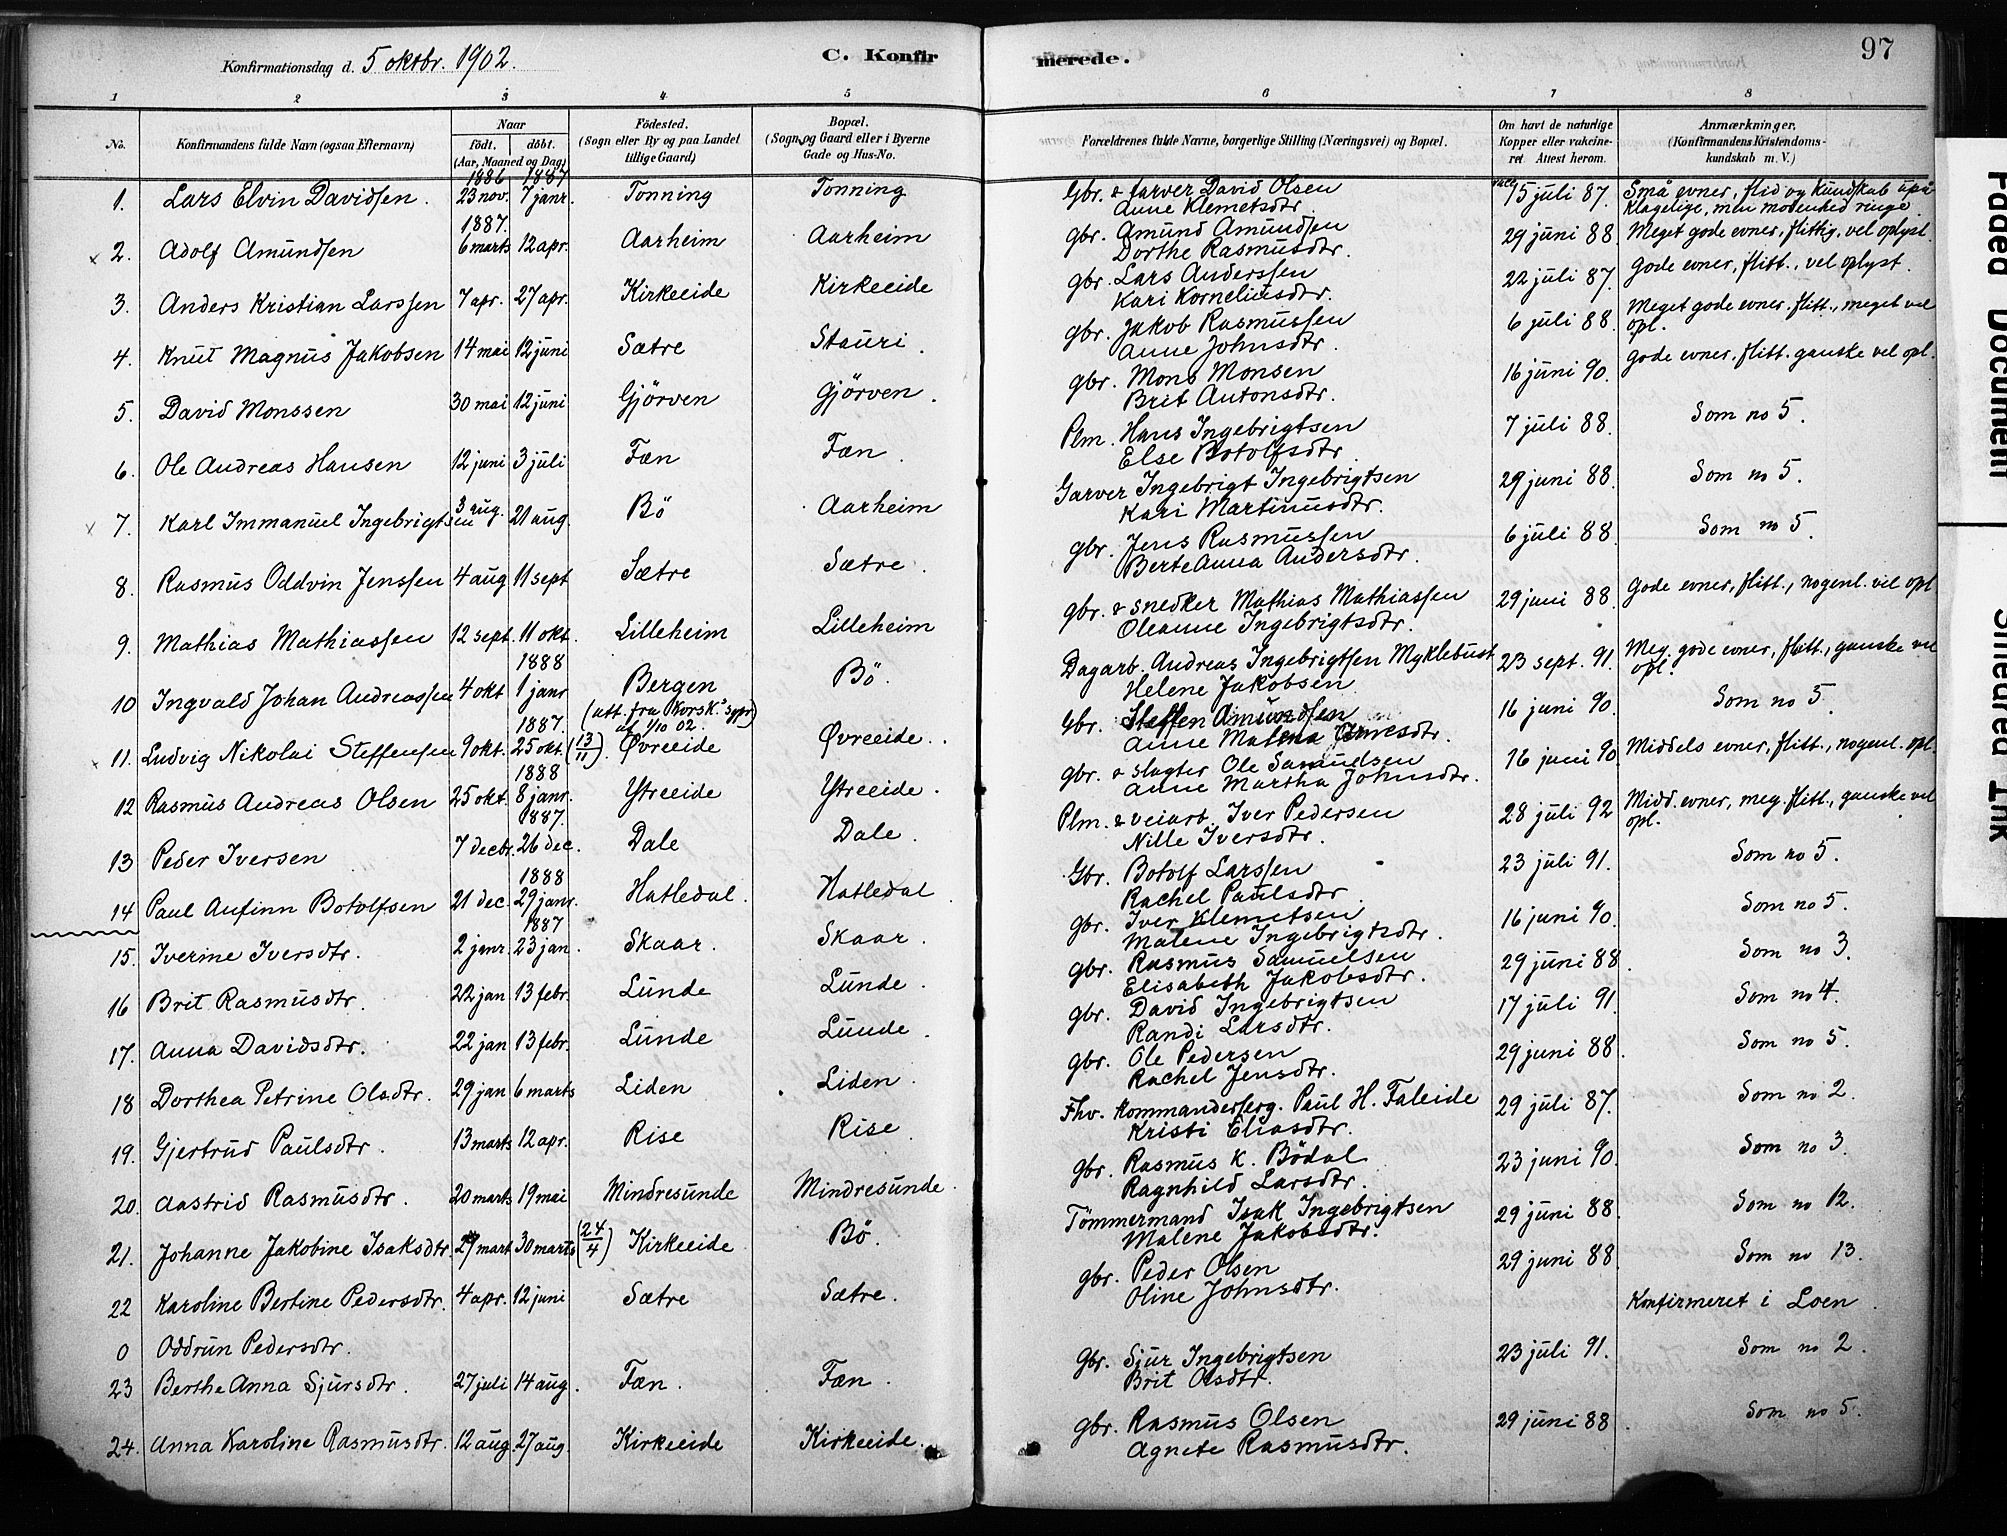 Konfirmationsdag d. 5 oktbr. 1902.
C. Konfirmerede.
97
1 2 3 4 5 6 7 8
No. Konfirmandens fulde Navn (ogsaa Efternavn) Naar födt. döbt. (Aar, Maaned og Dag) Födested. (Sogn eller By og paa Landet tillige Gaard) Bopæl. (Sogn og Gaard eller i Byerne Gade og Hus-No. Forældrenes fulde Navne, borgerlige Stilling (Næringsvei) og Bopæl. Om havt de naturlige Kopper eller vakcineret. Attest herom. Anmærkninger. (Konfirmandens Kristendomskundskab m. V.)
1. Lars Elvin Davidssen. 1886 23 nov. 1887 7 janr. Tonning Tonning Gbr. & farver David Olsen Anne Klemetsdtr. vacc. 15 juli 87. Små evner, flid og kundskab upåklagelige, men modenhed ringe.
2. Adolf Amundsen 1887. 6 marts 12 apr. Aarheim Aarheim gbr. Amund Amundsen Dorthe Rasmusdtr. 29 juni 88. Meget gode evner, flittig, vel oplyst.
3. Anders Kristian Larssen 7 apr. 27 apr. Kirkeeide Kirkeeide gbr. Lars Anderssen Kari Korneliusdtr. 22 juli 87. Gode evner, flitt., vel oplyst.
4. Knut Magnus Jakobsen 14 mai 12 juni Sætre Stauri. gbr. Jakob Rasmussen Anne Johnsdtr. 6 juli 88. Meget gode evner. flitt., meget vel opl.
5. David Monssen 30 mai 12 juni Gjörven Gjörven. gbr. Mons Monsen Brit Antonsdtr. 16 juni 90. gode evner, flitt. ganske vel opl.
6. Ole Andreas Hansen 12 juni 3 juli Fæn Fæn. Plm. Hans Ingebrigtsen Else Botolfsdtr. 7 juli 88. Som no 5.
7. Karl Immanuel Ingebrigtsen 3 aug. 21 aug. Bö Aarheim Garver Ingebrigt Ingebrigtsen Kari Martinusdtr. 29 juni 88. Som no 5.
8. Rasmus Oddvin Jenssen 4 aug 11 sept Sætre Sætre. gbr. Jens Rasmussen Berte Anna Andersdtr. 6 juli 88. Som no 5.
9. Mathias Mathiassen 12 sept. 11 okt. Lilleheim Lilleheim gbr. & snedker Mathias Mathiassen Oleanne Ingebrigtsdtr. 29 juni 88. Gode evner, flitt., nogenl. vel opl
10 Ingvald Johan Andreassen 4 okt 1888 1 janr Bergen (att. fra Korsk. sgpr. af 1/10 02.) Bö. Dagarb. Andreas Ingebrigtsen Myklebust Helene Jakobsen 23 sept. 91. Meg. gode evner, flitt., ganske vel opl.
11. Ludvig Nikolai Steffensen 9 okt. 1887. 25 okt. (13/11). Øvreeide Øvreeide. Gbr. Steffen Amundsen Anne Malena 16 juni 90. Som no 5.
12 Rasmus Andreas Olsen 25 okt. 1888 8 janr. Ytreeide Ytreeide. gbr. & slagter Ole Samuelsen Anne Martha Johnsdtr. 16 juni 90. Middels evner, flitt., nogenl. opl.
13 Peder Iversen 7 decbr. 1887. 26 dec. Dale Dale. Plm. & veiarb. Iver Pedersen Nille Iversdtr. 28 juli 92 Midd. evner, meg. flitt., ganske vel opl.
14 Paul Anfinn Botolfsen 21 dec. 1888 29 janr. Hatledal. Hatledal. Gbr. Botolf Larssen Rachel Paulsdtr. 23 juli 91. Som no 5.
15. Iverine Iversdtr. 2 janr. 1887 23 jan. Skaar. Skaar. gbr. Iver Klemetsen Malene Ingebrigtsdtr. 16 juni 90. Som no 5.
16 Brit Rasmusdtr. 22 jan 13 febr. Lunde Lunde. gbr. Rasmus Samuelsen Elisabeth Jakobsdtr. 29 juni 88. Som no 3.
17. Anna Davidsdtr. 22 jan 13 febr. Lunde Lunde. gbr. David Ingebrigtsen Randi Larsdtr. 17 juli 91. Som no 4.
18 Dorthea Petrine Olsdtr. 29 jan 6 marts Liden Liden. gbr. Ole Pedersen Rachel Jensdtr. 29 juni 88. Som no 5.
19. Gjertrud Paulsdtr. 13 marts 12 apr. Rise Rise Fhv. Kommandersserg. Paul H. Faleide Kristi Eliasdtr. 29 juli 87. Som no 2.
20. Aastrid Rasmusdtr. 20 marts 19 mai Mindresunde Mindresunde. gbr. Rasmus K. Bödal Ragnhild Larsdtr. 23 juni 90. Som no 3.
21. Johanne Jakobine Isaksdtr 27 mart 30 marts (24/4) Kirkeeide Bö. Tömmermand Isak Ingebrigtsen Malene Jakobsdtr. 29 juni 88. Som no 12.
22 Karoline Bertine Pedersdtr. 4 apr. 12 juni Sætre Sætre. gbr. Peder Olsen Oline Johnsdtr. 29 juni 88 Som no 13.
0 Oddrun Pedersdtr. Konfirmeret i Loen.
23 Berthe Anna Sjursdtr. 27 juli 14 aug. Fæn. Fæn. Gbr. Sjur Ingebrigtsen Brit Olsdtr. 23 juli 91. Som no 2.
24. Anna Karoline Rasmusdtr. 12 aug. 27 aug. Kirkeeide Kirkeeide. gbr. Rasmus Olsen Agnete Rasmusdtr. 29 juni 88. Som no 5.
Faded Document
Smeared Ink